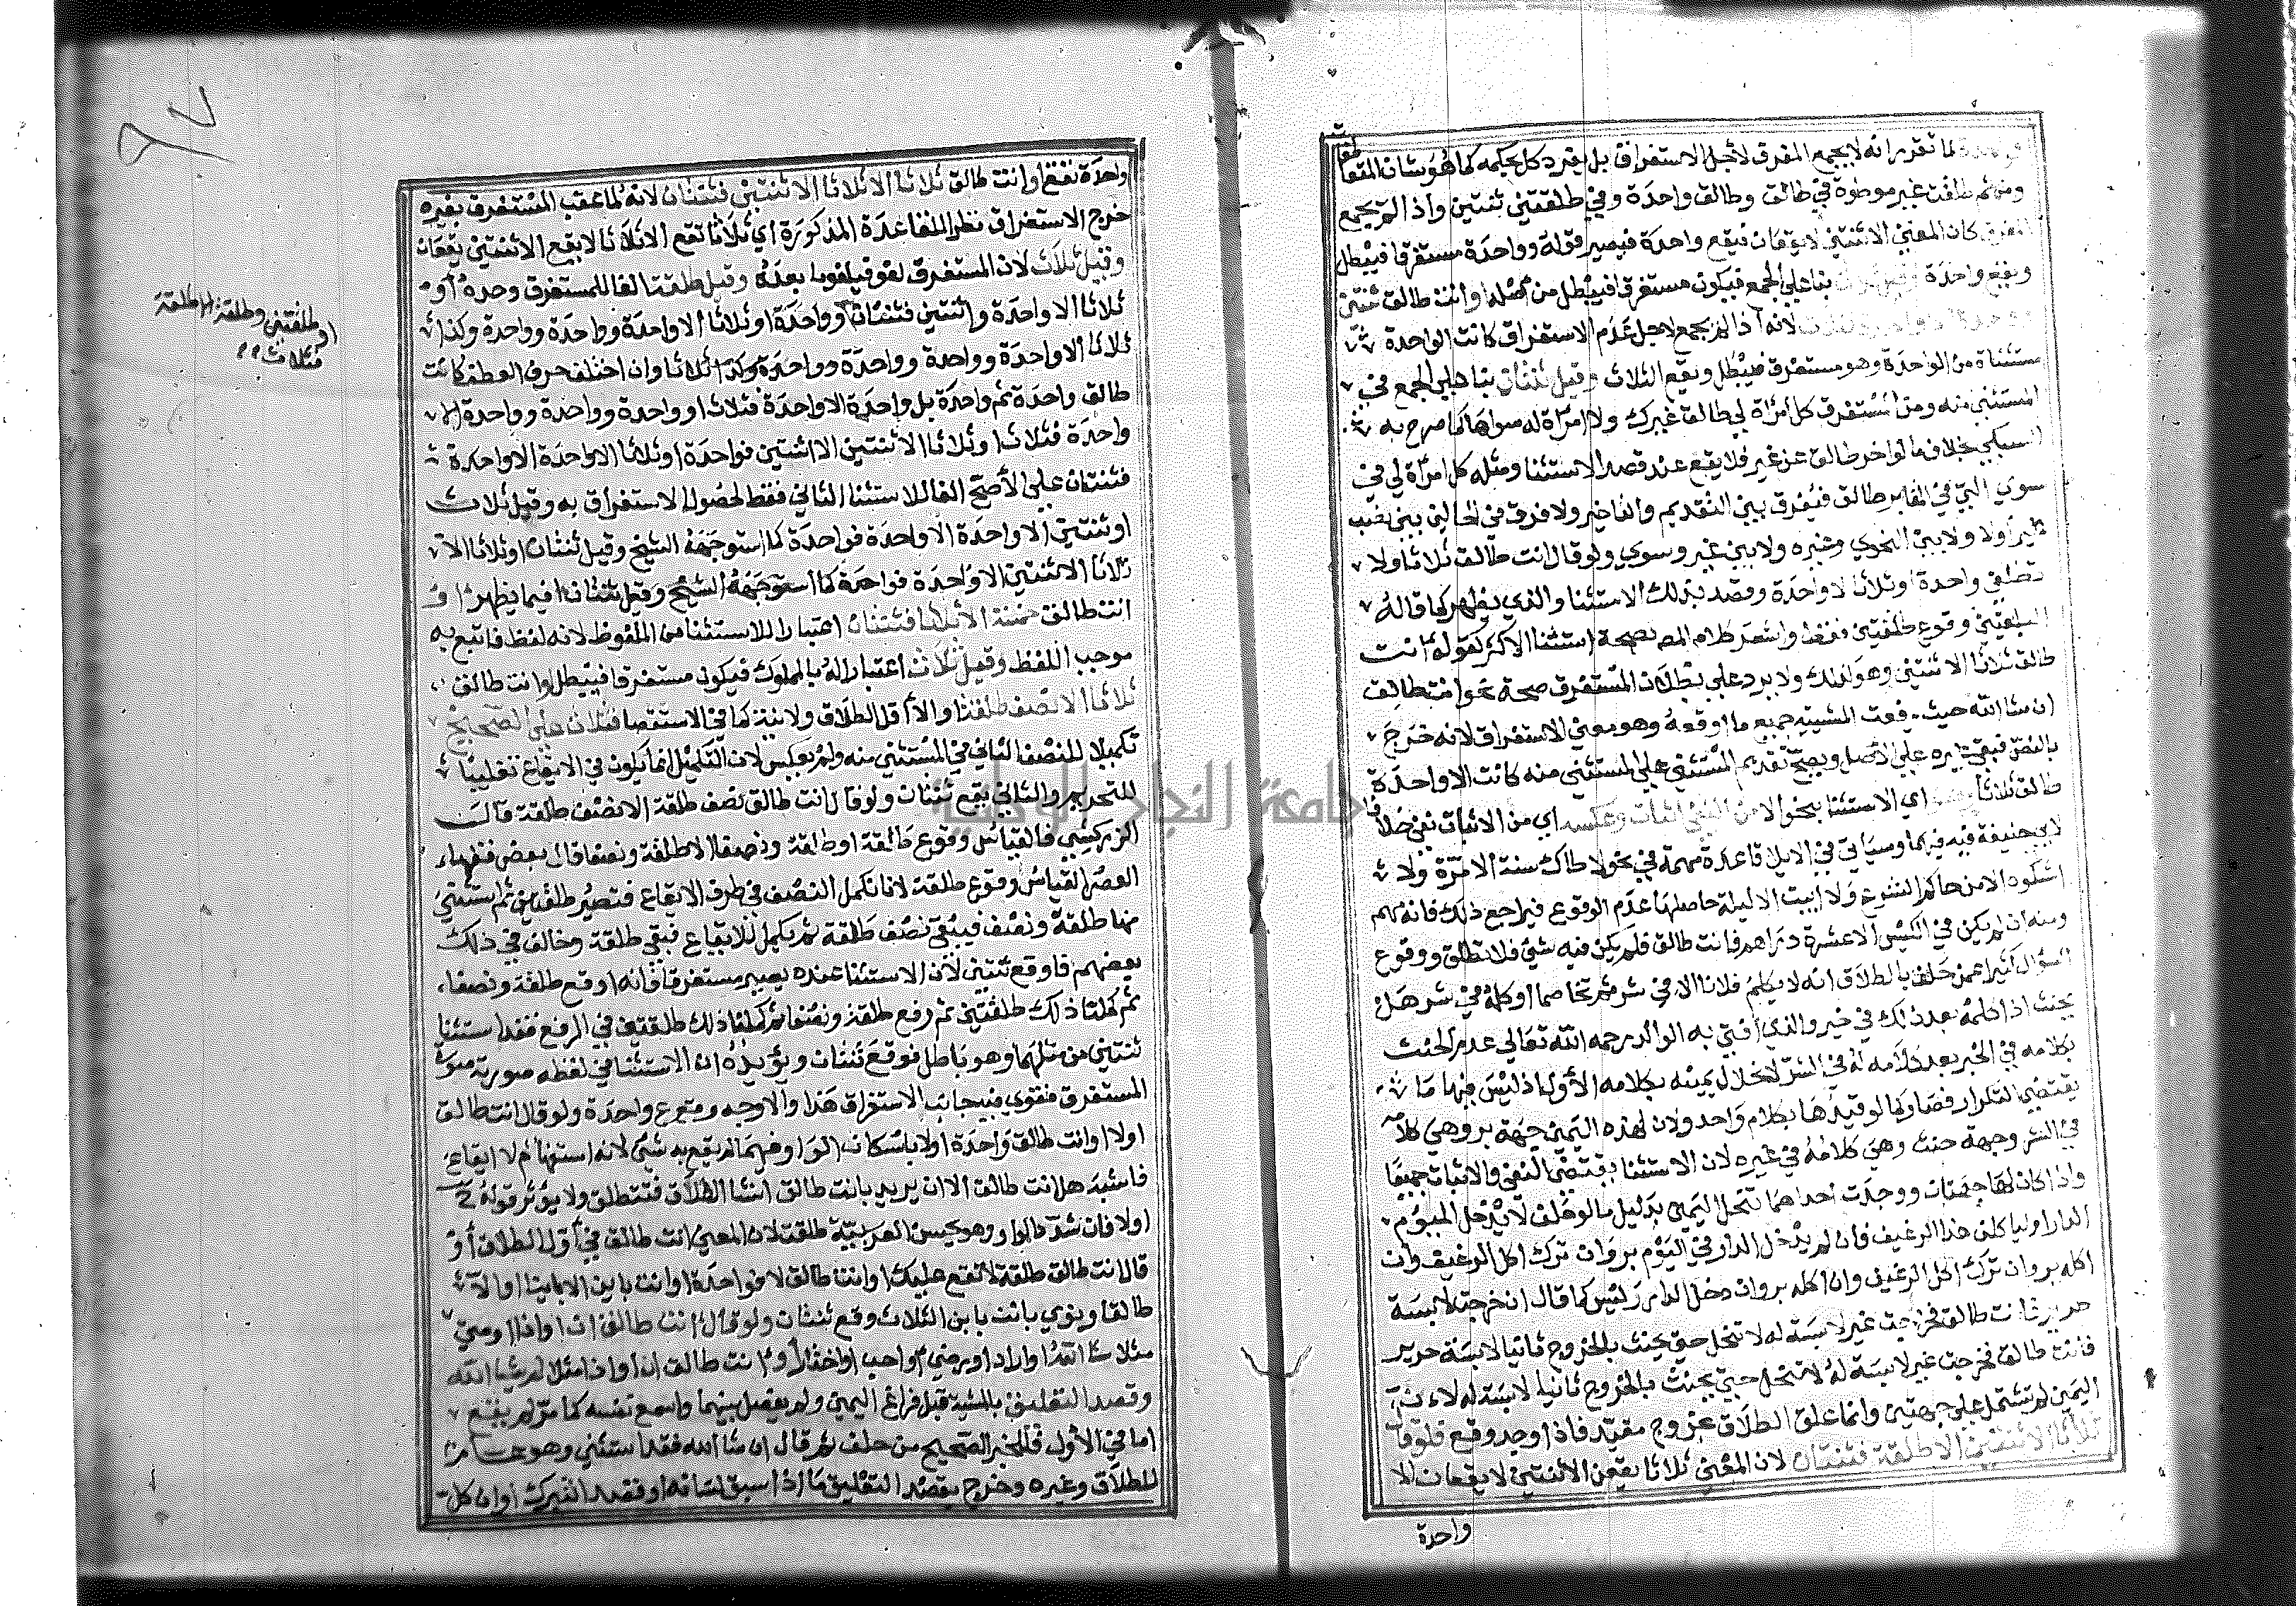 لما تقرر انه لا يجمع المفرق لاجل الاستغراق بل يفرد كل بحكمه كما هو شان المتعا
طفات
ومن ثم طلقت غير موطوة في طالق وطالق واحدة وفي طلقتين ثنتين واذا لم يجمع
المفرق كان المعنى الا ثنتين لا يقعان فيقع واحدة فيصير قوله وواحدة مستغرقا فيبطل
ويقع واحدة وقيل ثلاث بنا على الجمع فيكون مستغرقا فيبطل من اصله وانت طالق ثنتين
وواحدة الا واحدة فثلاث لانه اذا لم يجمع لاجل عدم الاستغراق كانت الواحدة
مستثناة من الواحدة وهو مستغرق فيبطل ويقع الثلاث وقيل ثنتان بنا على الجمع في
المستثنى منه ومن المستغرق كل امراة لي طالق غيرك ولا امراة له سواها كما صرح به
السبكي بخلاف ما لو اخر طالق عن غير فلا يقع عند قصد الاستثنا ومثله كل امراة لي في
سوى التي في المقابر طالق فيفرق بين التقديم والتاخير ولا فرق في الحالين بين نصب
غير اولا ولا بين النحوي وغيره ولا بين غير وسوى ولو قال انت طالق ثلاثا ولا
تطلقي واحدة او ثلاثا لا واحدة وقصد بذلك الاستثنا والذي يظهر كما قاله
البلقيني وقوع طلقتين فقط واشعر كلام المص بصحة استثنا الاكثر كقوله انت
طالق ثلاثا الا ثنتين وهو كذلك ولا يرد على بطلان المستغرق صحة نحو انت طالق
ان شا الله حيث رفعت المشيية جميع ما اوقعه وهو معنى الاستغراق لانه خرج
بالنص فبقي غيره على الاصل ويصح تقديم المستثنى على المستثنى منه كانت الا واحدة
طالق ثلاثا وهو اي الاستثنا بنحو الا من النفي اثبات وعكسه اي من الاثبات نفي خلافا
لابي حنيفة فيه فيهما وسياتي في الايلا قاعدة مهمة في نحو لا اطاك سنة الا مرة ولا
اشكوه الا من حاكم الشرع ولا ابيت الا ليلة حاصلها عدم الوقوع فيراجع ذلك فانه مهم
ومنه ان لم يكن في الكيس الا عشرة دراهم فانت طالق فلم يكن فيه شي فلا تطلق ووقوع
السوال كثيرا عمن حلف بالطلاق انه لا يكلم فلانا الا في شر ثم تخاصما وكلمه في شر هل
يحنث اذا كلمه بعد ذلك في خير والذي افتى به الوالد رحمه الله تعالى عدم الحنث
بكلامه في الخير بعد كلامه له في الشر لانحلال يمينه بكلامه الاول اذ ليس فيها ما
يقتضي التكرار فصار كما لو قيدها بكلام واحد ولان لهذه اليمين جهة بر وهي كلامه
في الشر وجهة حنث وهي كلامه في غيره لان الاستثنا يقتضي النفي والاثبات جميعا
واذا كان لها جهتان ووجدت احداهما تنحل اليمين بدليل ما لو حلف لا يدخل اليوم
الدار او لياكلن هذا الرغيف فان لم يدخل الدار في اليوم بر وان ترك اكل الرغيف وان
اكله بر وان ترك اكل الرغيف وان اكله بر وان دخل الدار وليس كما قال ان خرجت لابسة
حرير فانت طالق فخرجت غير لابسة له لا تنحل حتى يحنث بالخروج ثانيا لابسة حرير
فانت طالق فخرجت غير لابسة له لا تنحل حتى يحنث بالخروج ثانيا لابسة له لان
اليمين لم تشتمل على جهتين وانما علق الطلاق بخروج مقيد فاذا وجد وقع فلو قال
ثلاثا الا ثنتين الا طلقة فثنتان لان المعنى ثلاثا يقعن الا ثنتين لا يقعان الا
واحدة
واحدة تقع او انت طالق ثلاثا الا ثلاثا الا ثنتين فثنتان لانه لما عقب المستغرق بغيره
خرج الاستغراق نظرا للقاعدة المذكورة اي ثلاثا تقع الا ثلاثا لا يقع الا ثنتين يقعان
وقيل ثلاث لان المستغرق لغو فيلغو ما بعده وقيل طلقة الغا للمستغرق وحده او
ثلاثا الا واحدة و اثنتين فثنتان او واحدة او ثلاثا الا واحدة وواحدة وواحدة وكذا
ثلاثا الا واحدة وواحدة وواحدة وواحدة وكذا ثلاثا وان اختلف حرف العطف كانت
طالق واحدة ثم واحدة بل واحدة الا واحدة فثلاث او وواحدة وواحدة وواحدة الا
واحدة فثلاث او ثلاثا الا ثنتين الا اثنتين فواحدة او ثلاثا الا واحدة الا واحدة
فثنتان على الاصح الغا للاستثنا الثاني فقط لحصول الاستغراق به وقيل ثلاث
او ثنتين الا واحدة الا واحدة فواحدة كما استوجهه الشيخ وقيل ثنتان او ثلاثا الا
ثلاثا الا ثنتين الا واحدة فواحدة كما استوجهه الشيخ وقيل ثنتان فيما يظهر او
انت طالق خمسة الا ثلاثا فثنتان اعتبارا للاستثنا من الملفوظ لانه لفظ فاتبع به
موجب اللفظ وقيل ثلاث اعتبارا له بالمملوك فيكون مستغرقا فيبطل وانت طالق
ثلاثا الا نصف طلقة او الا اقل الطلاق ولا نية كما في الاستقصا فثلاث على الصحيح
تكميلا للنصف الثاني في المستثنى منه ولم يعكس لان التكميل انما يكون في الايقاع تغليبا
للتحريم والثاني يقع ثنتان ولو قال انت طالق نصف طلقة الا نصف طلقة قال
الزركشي فالقياس وقوع طالقة او طالقة ونصفا الا طلقة ونصفا قال بعض فقهاء
العصر القياس وقوع طلقة لانا نكمل النصف في طرف الايقاع فتصير طلقتين ثم استثنى
منها طلقة ونصف فيبقى نصف طلقة ثم يكمل للايقاع فبقي طلقة وخالف في ذلك
بعضهم فاوقع ثنتين لان الاستثنا عنده يصير مستغرقا فانه اوقع طلقة ونصفا
ثم كملنا ذلك طلقتين ثم رفع طلقة ونصفا ثم كملنا ذلك طلقتين في الرفع فقد استثنا
ثنتين من مثلها وهو باطل فوقع ثنتان ويؤيده ان الاستثنا في لفظه صورته صورة
المستغرق فقوي فيه جانب الاستغراق هذا والاوجه وقوع واحدة ولو قال انت طالق
اولا او انت طالق واحدة اولا باسكان الواو فيهما لم يقع به شي لانه استفهام لا ايقاع
فاشبه هل انت طالق الا ان يريد بانت طالق انشا الطلاق فتطلق ولا يؤثر قوله
اولا فان شدد الواو وهو يحسن العربية طلقت لان المعنى انت طالق في اول الطلاق او
قال انت طالق طلقة لا تقع عليك او انت طالق لا فواحدة او انت باين الا باينا او الا
طالقا ونوى بانت باين الثلاث وقع ثنتان ولو قال انت طالق ان او اذا او متى
مثلا شا الله او اراد او رضي او احب او اختار او انت طالق ان او اذا مثلا لم يشا الله
وقصد التعليق بالمشية قبل فراغ اليمين ولم يفصل بينهما واسمع نفسه كما مر لم يقع
اما في الاول فللخبر الصحيح من حلف ثم قال ان شا الله فقد استثنى وهو عام
للطلاق وغيره وخرج بقصد التعليق ما اذا سبق لسانه او قصد التبرك او ان كل
او طلقتين وطلقة الا طلقة
فثلاث
جامعة النجاح الوطنية